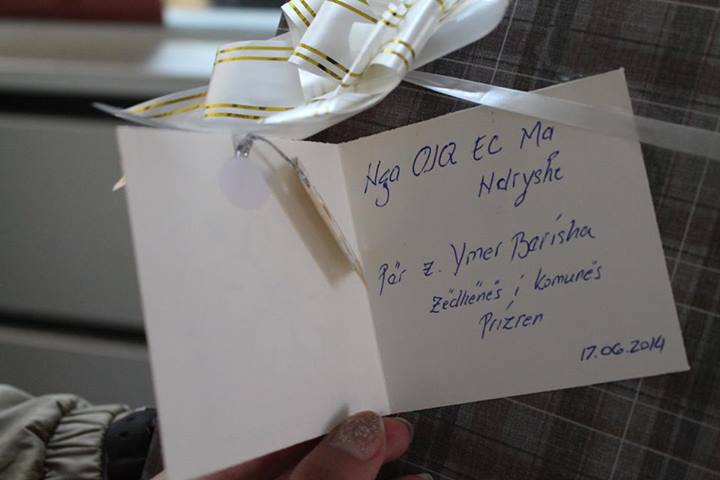 Nga OJQ EC Ma
Ndryshe
Për z. Ymer Berisha
Zëdhënës i komunës
Prizren
17.06.2014